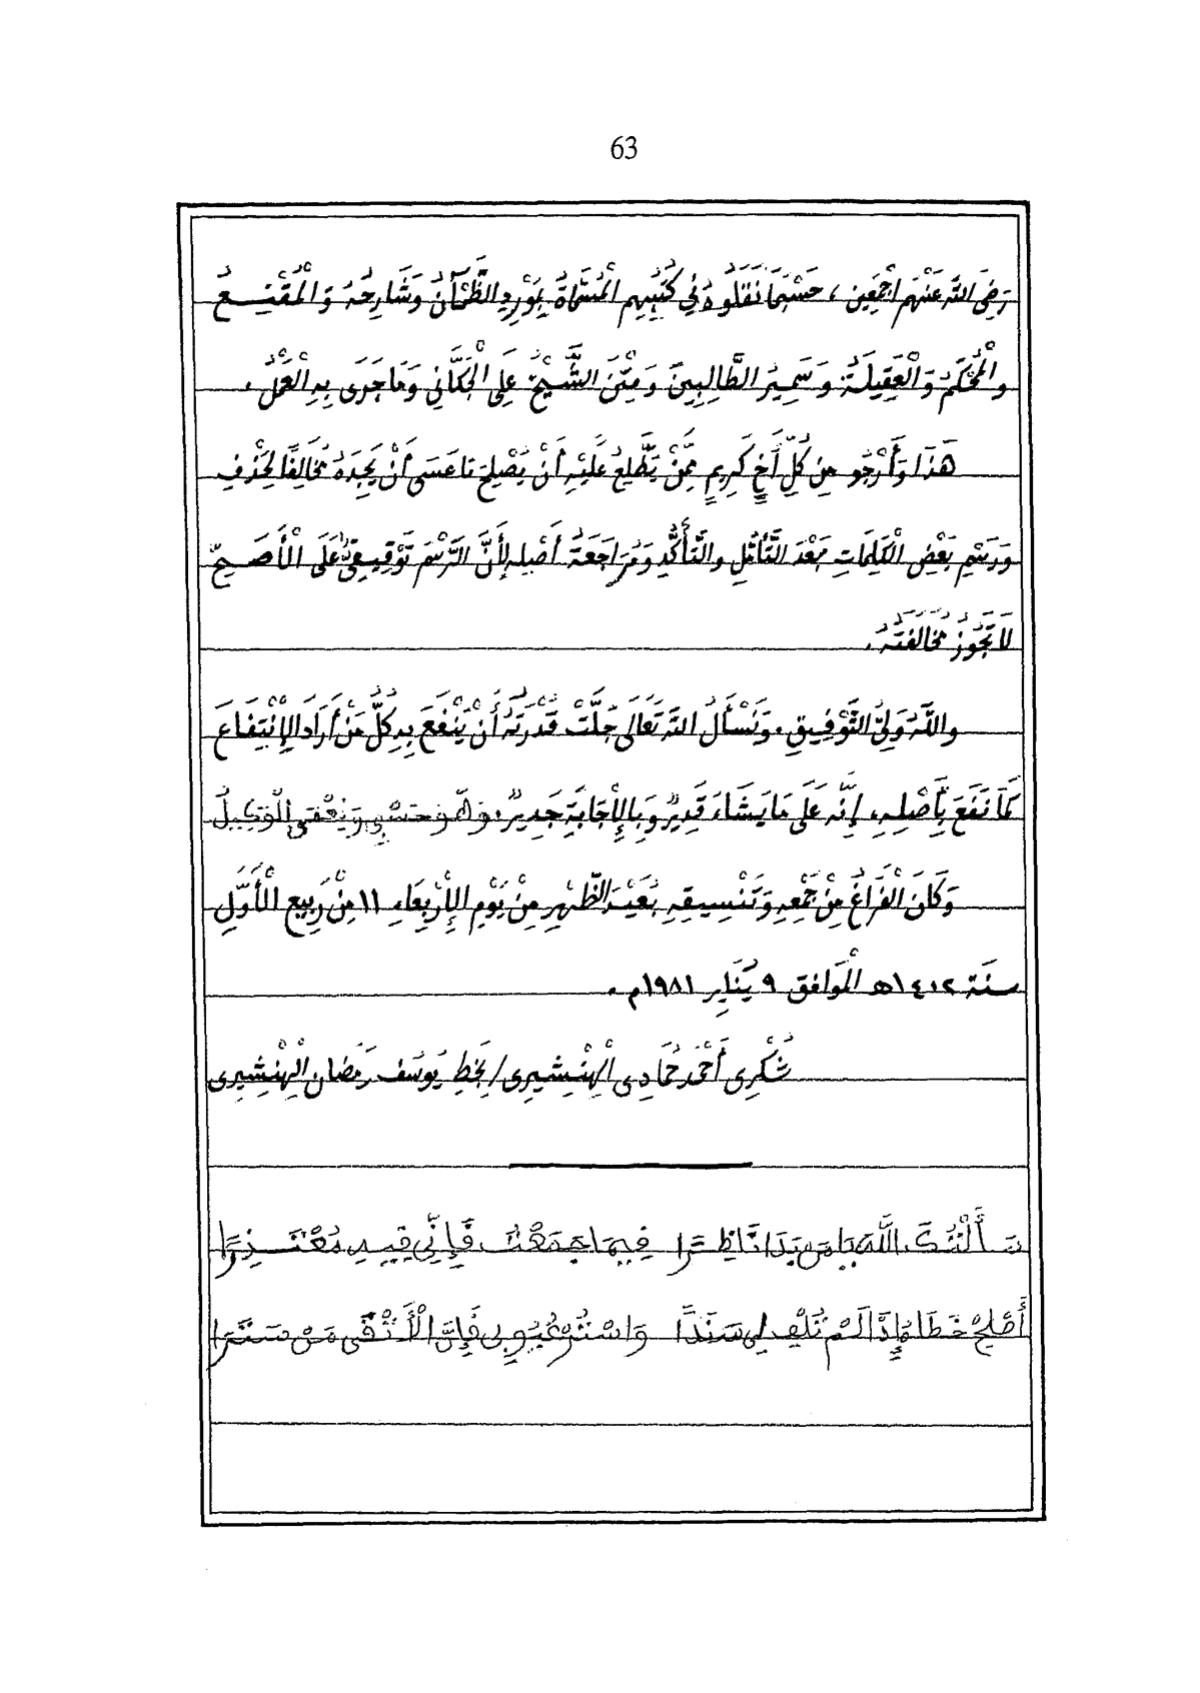 63
رَضِيَ اللَّهُ عَنْهُمْ أَجْمَعِينَ ، حَسْبَمَا نَقَلُوهُ فِي كُتُبِهِم الْمُسَمَّاةُ بِمَوْرِدِ الظَّمْآنْ وَشَارِحُهُ وَالْمُقْنِعُ
والْمُحْكَمُ وَالْعَقِيلَةُ وَسَمِيرُ الطَّالِبِينَ وَمَتْنَ الشَّيْخْ عَلِي الْجَكَّانِي وَمَا جَرَى بِهِ الْعَمَلُ .
هَذَا وَأَرْجُو مِن كُلِّ أَخٍ كَرِيمٍ مِمَّنْ يَطَّلِعُ عَلَيْهِ أَنْ يُصْلِحَ مَا عَسَى أَنْ يَجِدَهُ مُخَالِفًا لِحَذْفِ
وَرَسْمِ بَعْضِ الْكَلِمَاتِ بَعْدَ التَّأَمُّلِ والتَّأَكُّدِ وَمُرَاجَعَةُ أَصْلِهِ لِأَنَّ الرَّسْمَ تَوْقِيفِيٌّ عَلَى الْأَصَحِّ
لَا تَجُوزُ مُخَالَفَتُهُ .
واللَّهُ وَلِيُّ التَّوْفِيقِ . وَنَسْأَلُ اللَّهَ تَعَالَى جَلَّتْ قُدْرَتُهُ أَنْ يَنْفَعَ بِهِ كُلُّ مَنْ أَرَادَ الِإنْتِفَاعَ
كَمَا نَفَعَ بِأَصْلِهِ ، إِنَّهُ عَلَى مَا يَشَاءُ قَدِيرٌ وَبِالْإِجَابَةِ جَدِيرٌ ، وَهُوَ حَسْبِي وَنِعْمَ الْوَكِيلُ
وَكَانَ الْفَرَاغُ مِنْ جَمْعِهِ وَتَنْسِيقِهِ بُعَيْدَ الظُّهْرِ مِنْ يَوْمِ الإِرْبِعَاءِ ١١ مِنْ رَبِيعِ الْأَوَّلِ
سنَة ١٤٠٢هـ الْمُوَافِق ٩ يَنَايِر ١٩٨١م .
شُكْرِى أَحْمَد حُمَادِى الْهِنْشِيرِى / بِخَطِ يُوسُف رَمَضَان الْهِنْشِيرِى
سَأَلْتُكَ اللَّهَ يَا مَن بَدَا نَاظِرًا فِيمَا جَمَعْتُ فَإِنِّي فِيهِ مُعْتَذِرًا
أَصْلِحْ خَطَاهُ إِذَا لَمْ تَلْفِ لِي سَنَدًا وَاسْتُرْ عُيُوبِي فَإِنَّ الْأَتْقَى مَن سَتَرَا